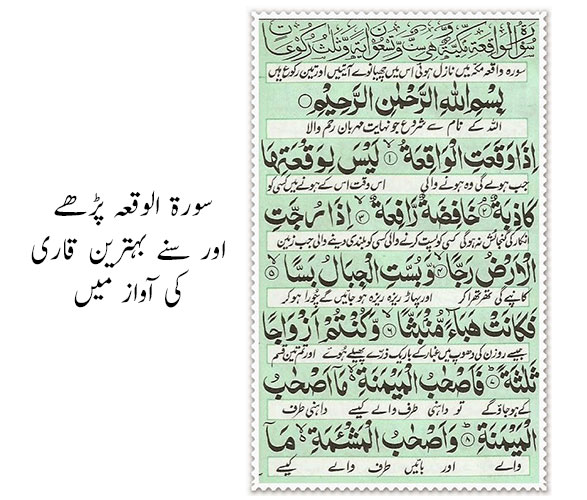 سورۃ الوقعہ پڑھے
اور سنے بہترین قاری
کی آواز میں
سورۃ الواقعۃ مکیۃ وھی ست وتسعون اٰیۃ وثلٰث رکوعات
سورہ واقعہ مکہ میں نازل ہوئی اس میں چھیانوے آیتیں اور تین رکوع ہیں
بِسْمِ اللهِ الرَّحْمٰنِ الرَّحِيْمِ
اللہ کے نام سے شروع جو نہایت مہربان رحم والا
اِذَا وَقَعَتِ الْوَاقِعَةُ ۙ۱ لَيْسَ لِوَقْعَتِهَا
جب ہولے گی وہ ہونے والی اس وقت اس کے ہونے میں کسی کو
كَاذِبَةٌ ۘ۲ خَافِضَةٌ رَّافِعَةٌ ۙ۳ اِذَا رُجَّتِ
انکار کی گنجائش نہ ہوگی کسی کو پست کرنے والی کسی کو بلندی دینے والی جب زمین
الْاَرْضُ رَجًّا ۙ۴ وَّبُسَّتِ الْجِبَالُ بَسًّا ۙ۵
کانپے گی تھرتھرا کر اور پہاڑ ریزہ ریزہ ہو جائیں گے چُورا ہو کر
فَكَانَتْ هَبَآءً مُّنْۢبَثًّا ۙ۶ وَّكُنْتُمْ اَزْوَاجًا
جیسے روزن کی دھوپ میں غبار کے باریک ذرّے پھیلے ہوئے اور تم تین قسم
ثَلٰثَةً ؕ۷ فَاَصْحٰبُ الْمَيْمَنَةِ ۙ مَاۤ اَصْحٰبُ
کے ہو جاؤ گے تو داہنی طرف والے کیسے داہنی طرف
الْمَيْمَنَةِ ؕ۸ وَاَصْحٰبُ الْمَشْـَٔمَةِ ۙ مَاۤ
والے اور بائیں طرف والے کیسے